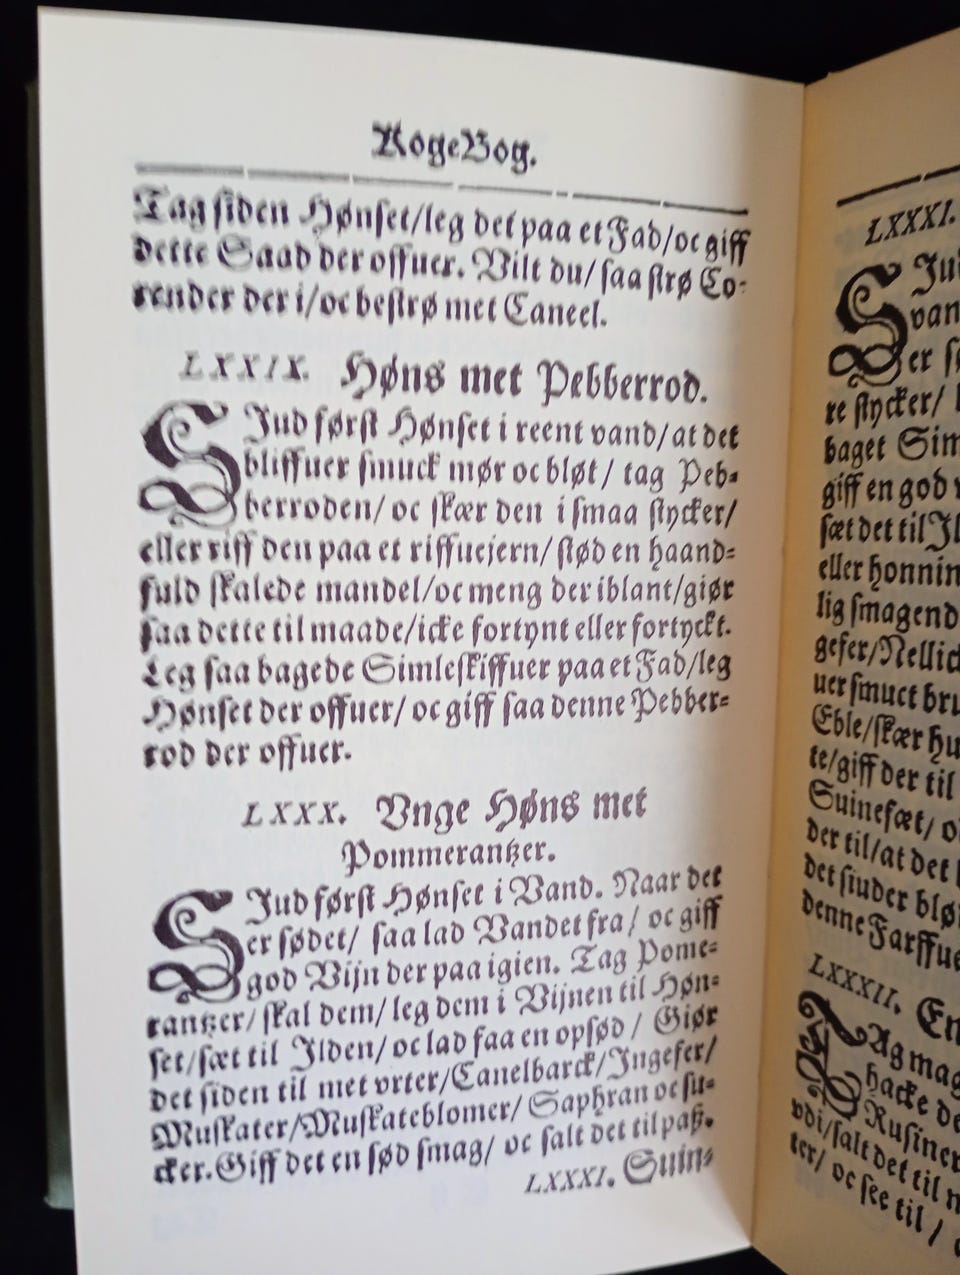 KogeBog.
Tag siden Hønset/leg det paa et Fad/oc giff
dette Saad der offuer. Vilt du/ saa strø Co-
render der i/oc bestrø met Caneel.
LXXIX. Høns met Pebberrod.
SIud først Hønset i reent vand/at det
bliffuer smuck mør oc bløt/ tag Peb-
berroden/ oc skær den i smaa stycker/
eller riff den paa et riffuejern/stød en haand-
fuld skalede mandel/oc meng der iblant/giør
saa dette til maade/icke fortynt eller fortyckt.
Leg saa bagede Simleskiffuer paa et Fad/leg
Hønset der offuer/ oc giff saa denne Pebber-
rod der offuer.
LXXX. Vnge Høns met
Pommerantzer.
SIud først Hønset i Vand. Naar det
er sødet/ saa lad Vandet fra/ oc giff
god Vijn der paa igien. Tag Pome-
rantzer/ skal dem/ leg dem i Vijnen til Høn-
set/sæt til Ilden/ oc lad faa en opsød/ Giør
det siden til met vrter/Canelbarck/Ingefer/
Muskater/Muskateblomer/ Saphran oc su-
cker. Giff det en sød smag/ oc salt det til paß.
LXXXI. Suin-
LXXXI.
SIud
van
er
re stycker/
baget Sim
giff en god
sæt det til Il
eller honnin
lig smagend
gefer/Nellic
uer smuct bru
Eble/skær hu
te/giff der til
Suinefæt/
der til/at det
det siuder blø
denne Farffue
LXXXII. En
TAg mag
hacke de
Rusiner
vdi/salt det til
ter/ oc see til /